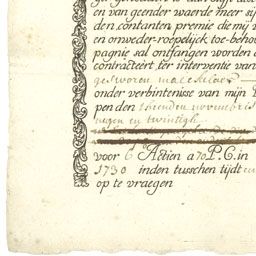 en van geender waerde meer sij
den contanten premie die mij v
en onweder-roepelijck toe-behou
pagnie sal ontfangen worden e
contracteert ter interventie van
gesworen maeckelaer
onder verbintenisse van mijn
pen den thienden novembris
negen en twintigh
voor 6 Actien a 70 P. C. in
1730 inden tusschen tijdt en
op te vraegen